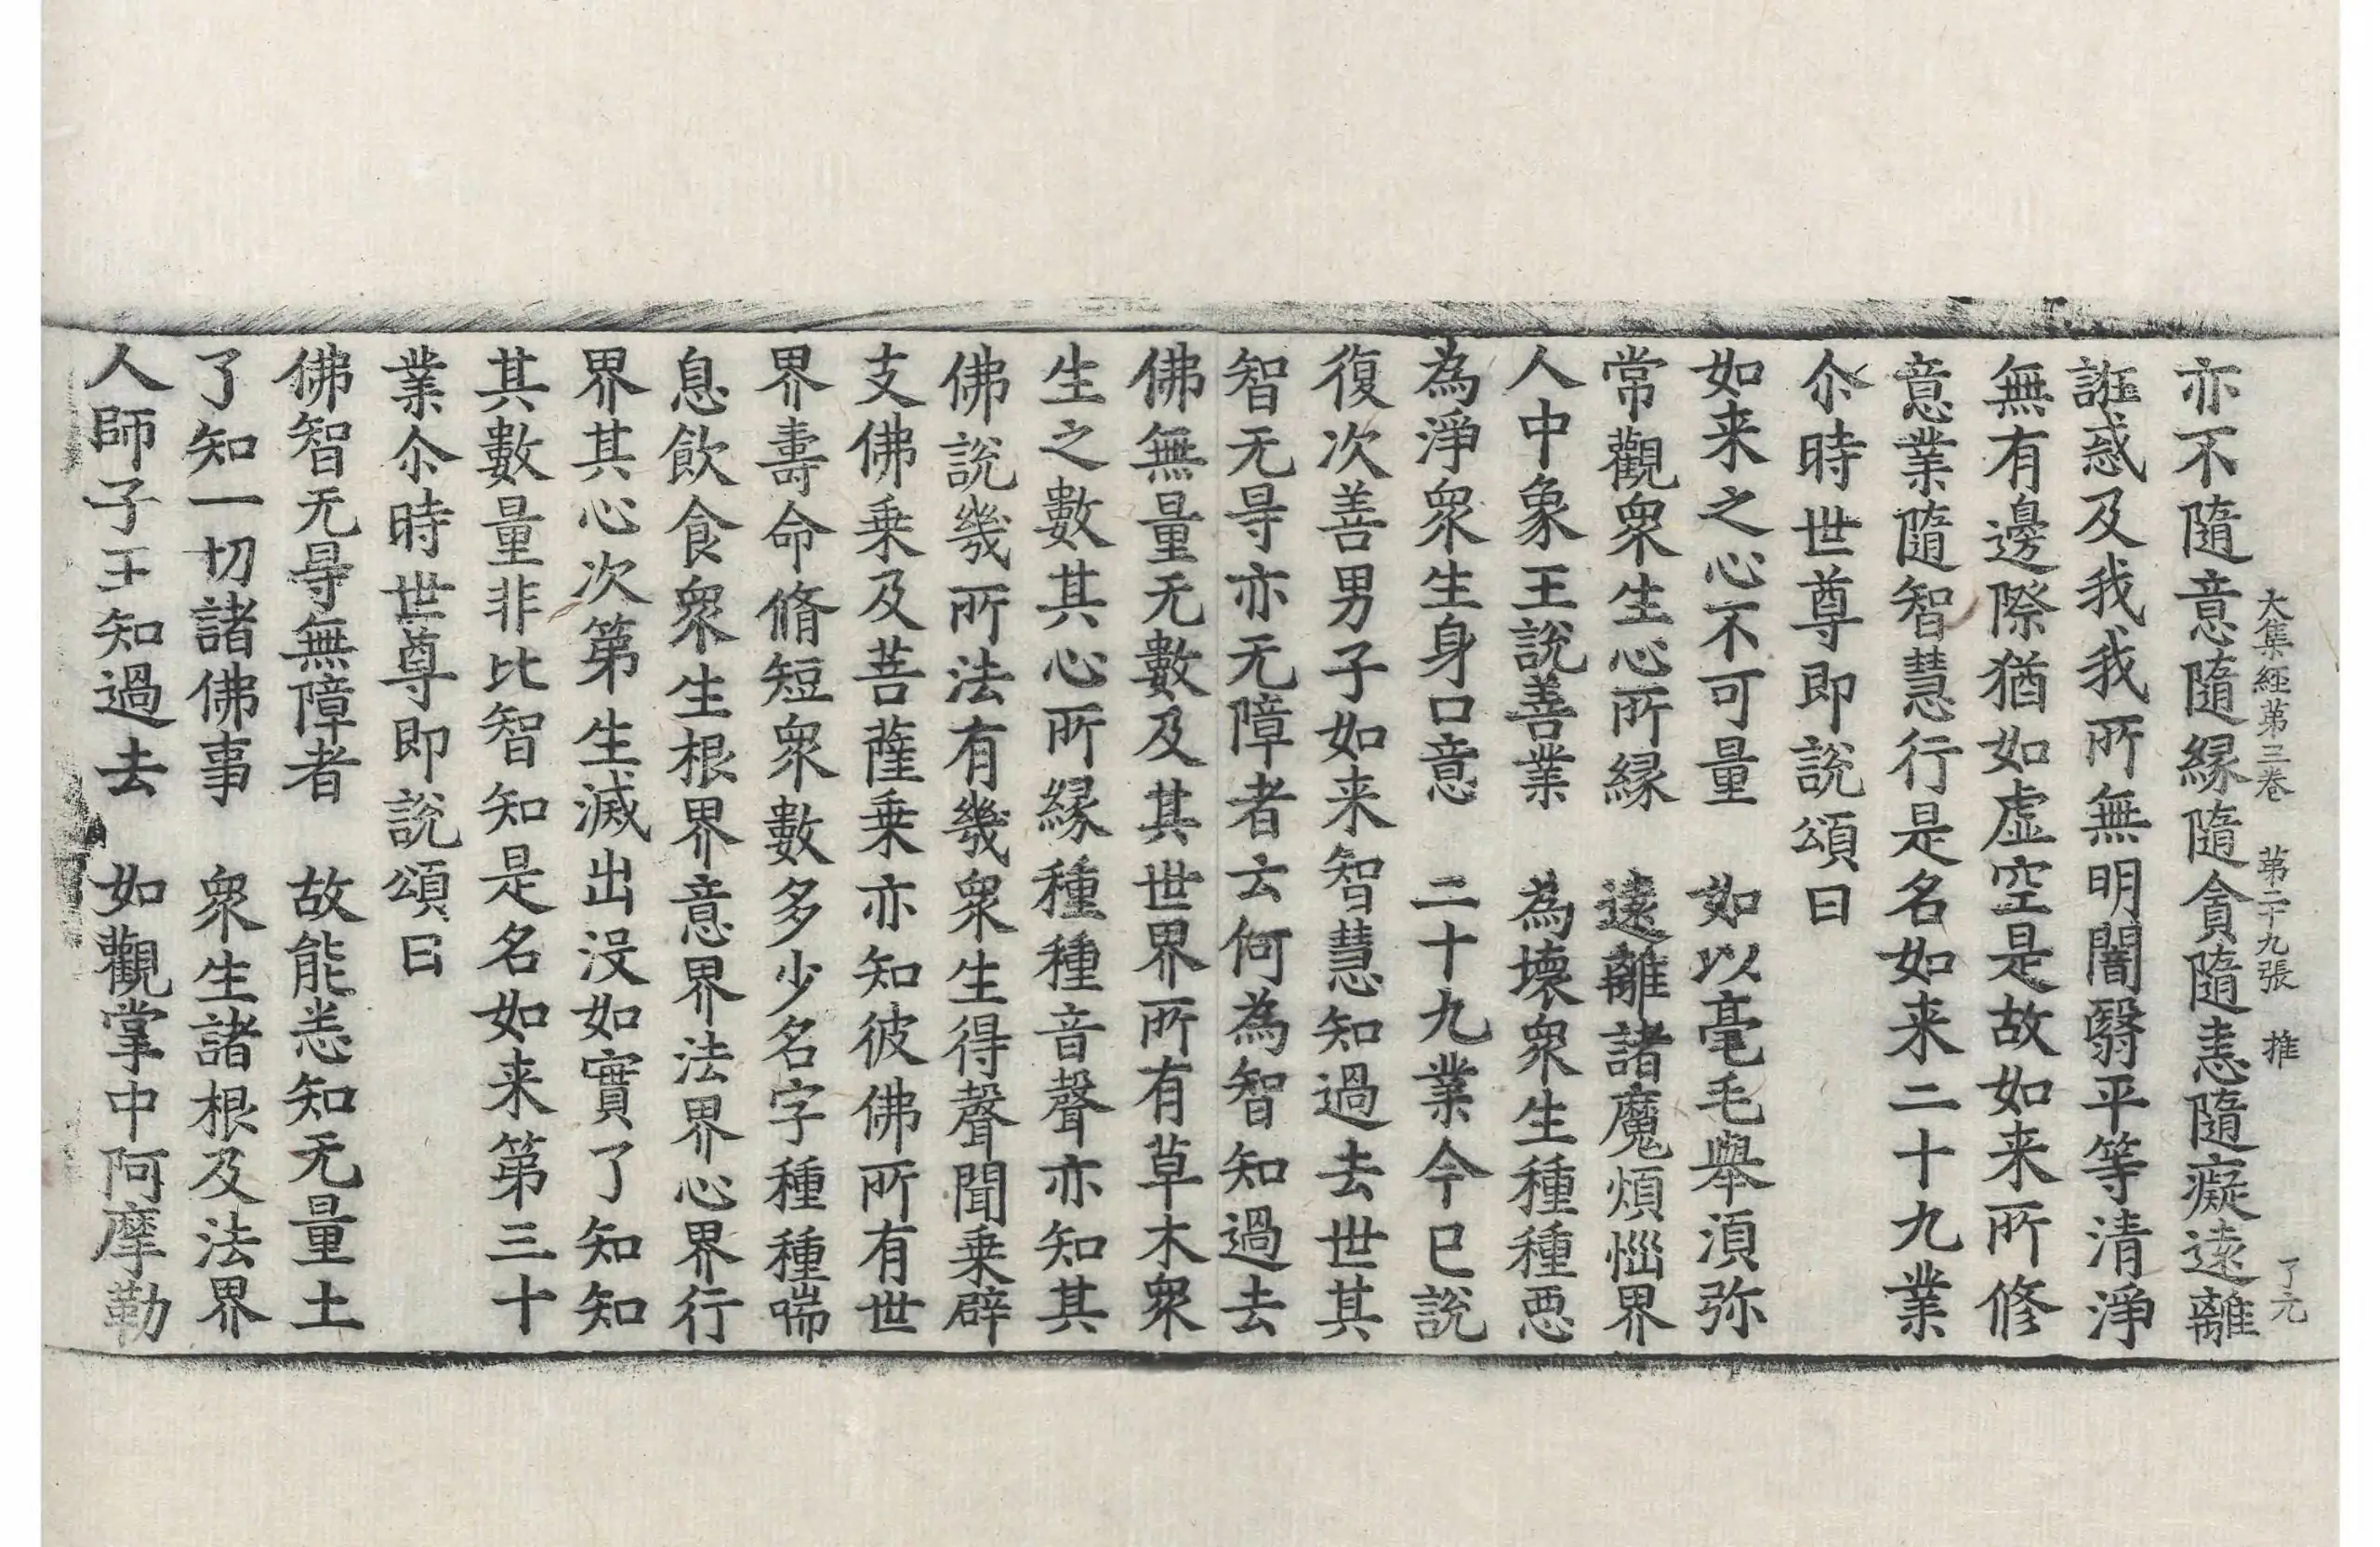 大集経第三巻 第二十九張 推 了元
亦不隨意隨縁隨貪隨恚隨癡遠離
誑惑及我我所無明闇翳平等清淨
無有邊際猶如虛空是故如来所修
意業隨智慧行是名如来二十九業
尒時世尊即說頌曰
如来之心不可量 如以毫毛舉湏弥
常觀衆生心所縁 遠離諸魔煩惱界
人中象王說善業 為壞衆生種種惡
為淨衆生身口意 二十九業今已說
復次善男子如来智慧知過去世其
智无㝵亦无障者云何為智知過去
佛無量无數及其世界所有草木衆
生之數其心所縁種種音聲亦知其
佛說幾所法有幾衆生得聲聞乗辟
支佛乗及菩薩乗亦知彼佛所有世
界壽命脩短衆數多少名字種種喘
息飲食衆生根界意界法界心界行
界其心次第生滅出没如實了知知
其數量非比智知是名如来第三十
業尒時世尊即說頌曰
佛智无㝵無障者 故能悉知无量土
了知一切諸佛事 衆生諸根及法界
人師子王知過去 如觀掌中阿摩勒